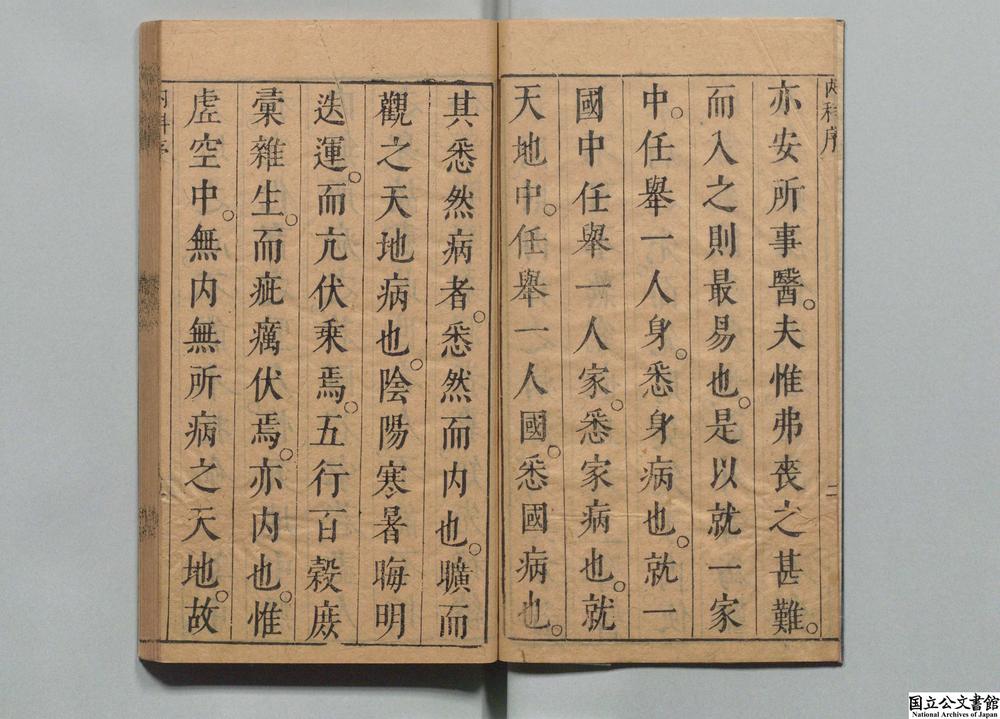 內科序
亦安所事醫。夫惟弗喪之甚難。
而入之則最易也。是以就一家
中。任舉一人身。悉身病也。就一
國中任舉一人家。悉家病也。就
天地中。任舉一人國。悉國病也。
其悉然病者。悉然而内也。曠而
觀之天地病也。陰陽寒暑晦明
迭運。而亢伏乘焉。五行百穀庶
彙雜生。而疵癘伏焉。亦内也。惟
虛空中。無内無所病之天地。故
国立公文書館
National Archives of Japan